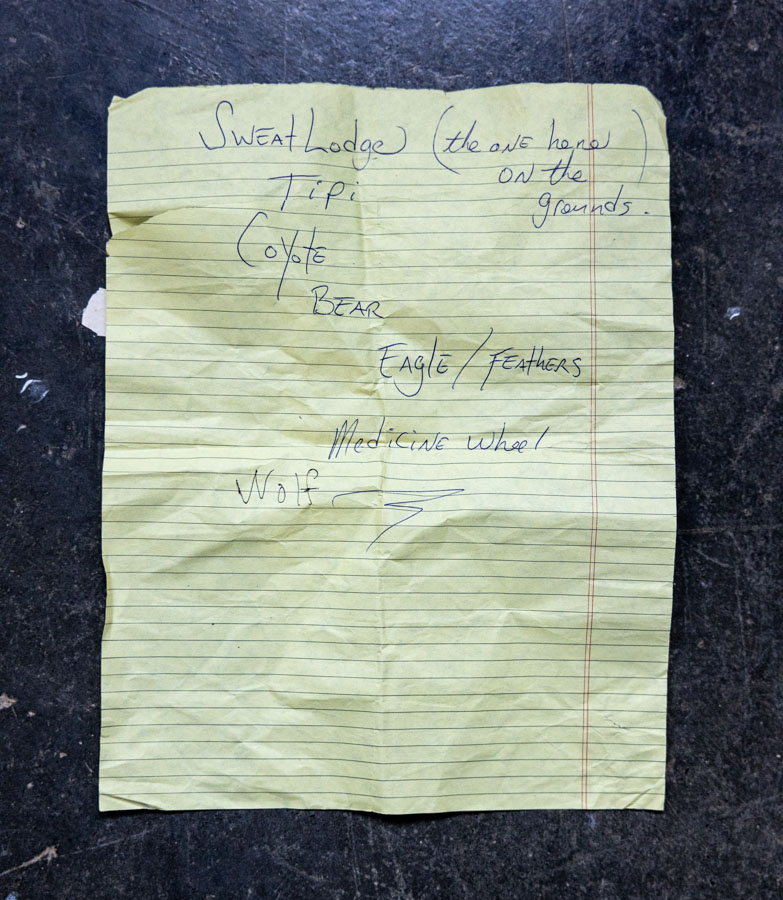 SWEAt Lodge (the ONE here
ON the
grounds.)
Tipi
Coyote
BEAR
EAglE / FEAthERS
MediciNE wheel
Wolf